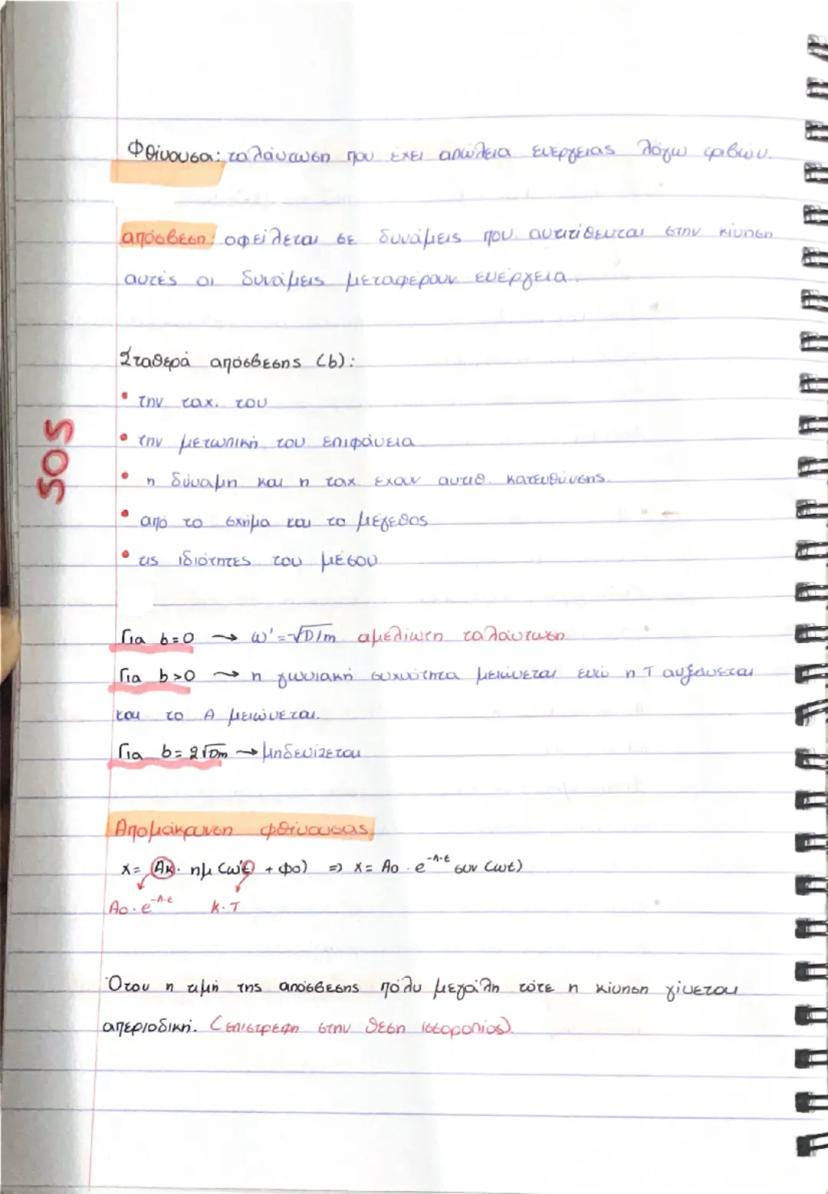 Φθίνουσα: ταλάντωση που έχει απώλεια ενέργειας λόγω τριβών.
απόσβεση: οφείλεται σε δυνάμεις που αντιτίθενται στην κίνηση
αυτές οι δυνάμεις μεταφερουν ενέργεια.
Σταθερά απόσβεσης (b):
• την ταχ. του
• την μετωπική του επιφάνεια
• η δύναμη και η ταχ εχουν αντιθ. κατευθύνσης.
• από το σχήμα και το μέγεθος
• τις ιδιότητες του μέσου
SOS
Για b=0 → ω'=√D/m αμείωτη ταλάντωση
Για b>0 → η γωνιακή συχνότητα μειώνεται ενώ η T αυξάνεται
και το A μειώνεται.
Για b=2√Dm → μηδενίζεται
Απομάκρυνση φθίνουσας
x= Aκ · ημ (ω't + φο) => x= Ao · e^-Λ·t συν (ωt)
Ao · e^-Λ·t κ·T
Όταν η τιμή της απόσβεσης πόλυ μεγάλη τότε η κίνηση γίνεται
απεριοδική. (επιστρεφη στην θεση ισσοροπίας)